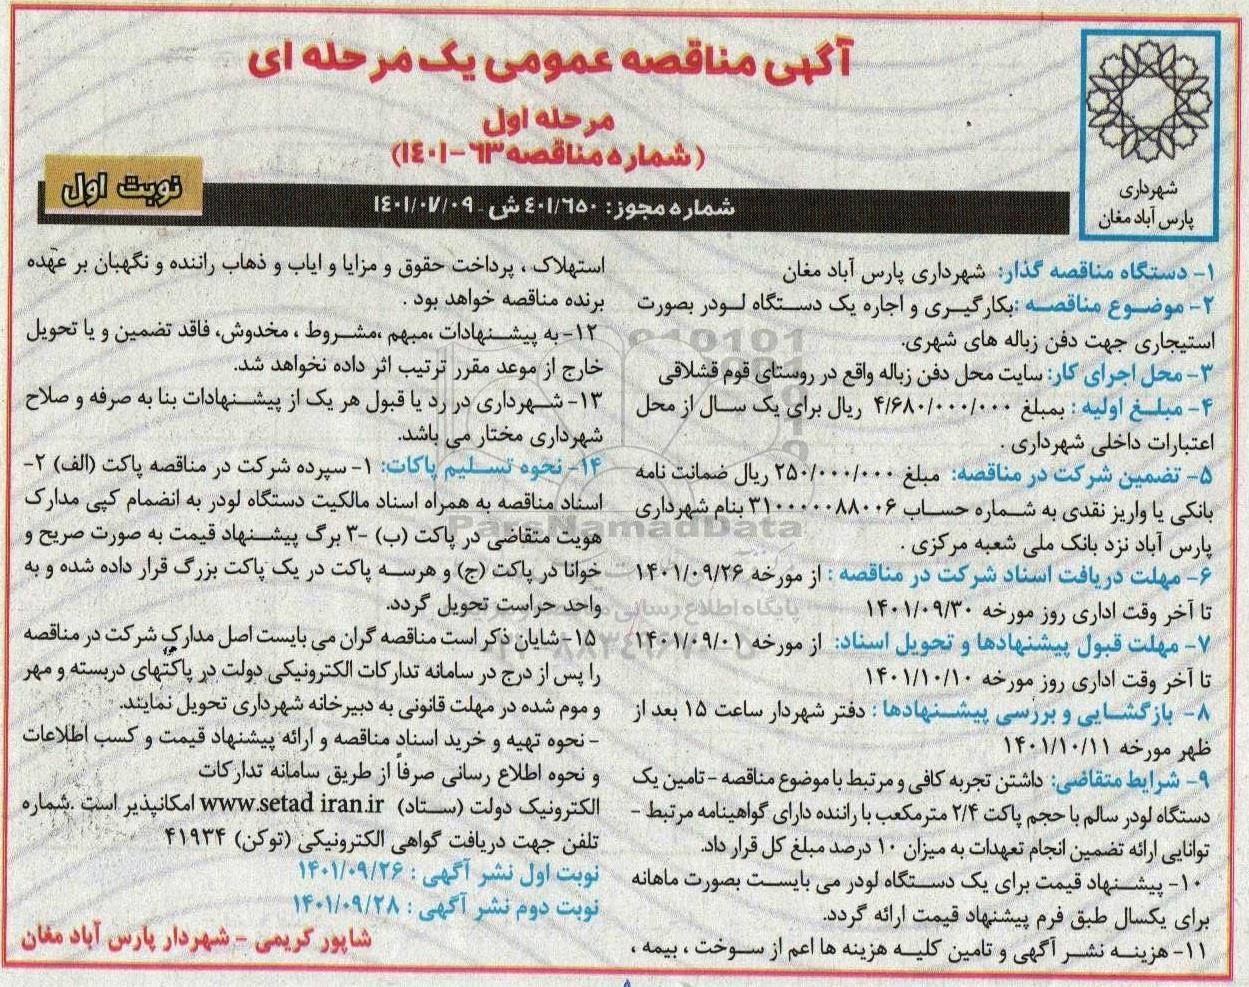 آگهی مناقصه عمومی یک مرحله ای
مرحله اول
(شماره مناقصه ۶۳-۱۴۰۱)
شهرداری
پارس آباد مغان
نوبت اول
شماره مجوز: ۴۰۱/۶۵۰ ش - ۱۴۰۱/۰۷/۰۹
۱- دستگاه مناقصه گذار: شهرداری پارس آباد مغان
۲- موضوع مناقصه :بکارگیری و اجاره یک دستگاه لودر بصورت
استیجاری جهت دفن زباله های شهری.
۳- محل اجرای کار: سایت محل دفن زباله واقع در روستای قوم قشلاقی
۴- مبلغ اولیه : بمبلغ ۴/۶۸۰/۰۰۰/۰۰۰ ریال برای یک سال از محل
اعتبارات داخلی شهرداری .
۵- تضمین شرکت در مناقصه: مبلغ ۲۵۰/۰۰۰/۰۰۰ ریال ضمانت نامه
بانکی یا واریز نقدی به شماره حساب ۳۱۰۰۰۰۰۸۸۰۰۶ بنام شهرداری
پارس آباد نزد بانک ملی شعبه مرکزی .
۶- مهلت دریافت اسناد شرکت در مناقصه : از مورخه ۱۴۰۱/۰۹/۲۶
تا آخر وقت اداری روز مورخه ۱۴۰۱/۰۹/۳۰
۷- مهلت قبول پیشنهادها و تحویل اسناد: از مورخه ۱۴۰۱/۰۹/۰۱
تا آخر وقت اداری روز مورخه ۱۴۰۱/۱۰/۱۰
۸- بازگشایی و بررسی پیشنهادها : دفتر شهردار ساعت ۱۵ بعد از
ظهر مورخه ۱۴۰۱/۱۰/۱۱
۹- شرایط متقاضی: داشتن تجربه کافی و مرتبط با موضوع مناقصه - تامین یک
دستگاه لودر سالم با حجم پاکت ۲/۴ مترمکعب با راننده دارای گواهینامه مرتبط -
توانایی ارائه تضمین انجام تعهدات به میزان ۱۰ درصد مبلغ کل قرار داد.
۱۰- پیشنهاد قیمت برای یک دستگاه لودر می بایست بصورت ماهانه
برای یکسال طبق فرم پیشنهاد قیمت ارائه گردد.
۱۱- هزینه نشر آگهی و تامین کلیه هزینه ها اعم از سوخت ، بیمه ،
استهلاک ، پرداخت حقوق و مزایا و ایاب و ذهاب راننده و نگهبان بر عهده
برنده مناقصه خواهد بود .
۱۲- به پیشنهادات ،مبهم ،مشروط ، مخدوش، فاقد تضمین و یا تحویل
خارج از موعد مقرر ترتیب اثر داده نخواهد شد.
۱۳- شهرداری در رد یا قبول هر یک از پیشنهادات بنا به صرفه و صلاح
شهرداری مختار می باشد.
۱۴- نحوه تسلیم پاکات: ۱- سپرده شرکت در مناقصه پاکت (الف) ۲-
اسناد مناقصه به همراه اسناد مالکیت دستگاه لودر به انضمام کپی مدارک
هویت متقاضی در پاکت (ب) -۳ برگ پیشنهاد قیمت به صورت صریح و
خوانا در پاکت (ج) و هرسه پاکت در یک پاکت بزرگ قرار داده شده و به
واحد حراست تحویل گردد.
۱۵- شایان ذکر است مناقصه گران می بایست اصل مدارک شرکت در مناقصه
را پس از درج در سامانه تدارکات الکترونیکی دولت در پاکتهای دربسته و مهر
و موم شده در مهلت قانونی به دبیرخانه شهرداری تحویل نمایند.
- نحوه تهیه و خرید اسناد مناقصه و ارائه پیشنهاد قیمت و کسب اطلاعات
و نحوه اطلاع رسانی صرفاً از طریق سامانه تدارکات
الکترونیک دولت (ستاد) www.setad iran.ir امکانپذیر است .شماره
تلفن جهت دریافت گواهی الکترونیکی (توکن) ۴۱۹۳۴
نوبت اول نشر آگهی : ۱۴۰۱/۰۹/۲۶
نوبت دوم نشر آگهی : ۱۴۰۱/۰۹/۲۸
شاپور کریمی - شهردار پارس آباد مغان
ParsNamadData
پایگاه اطلاع رسانی